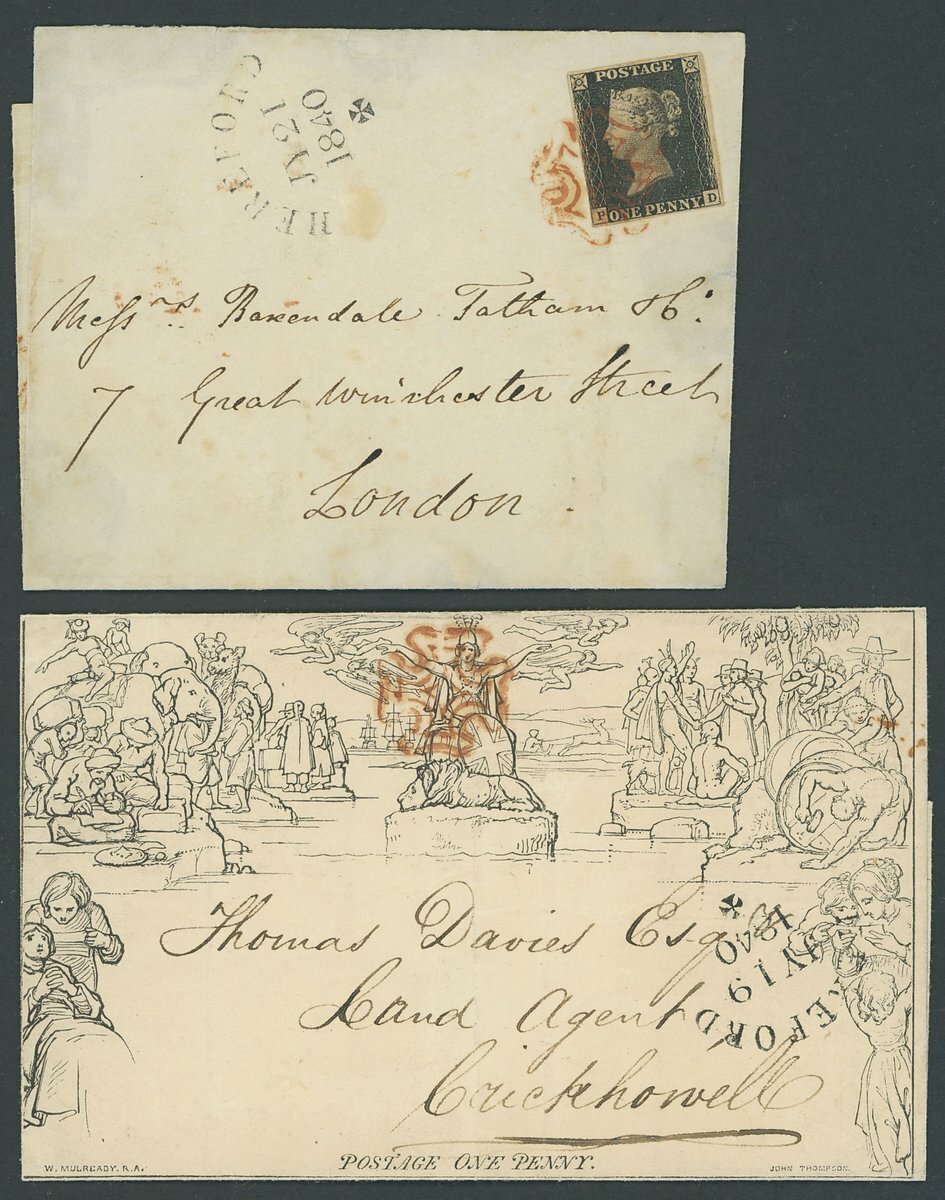 HEREFORD
JY 21
1840
POSTAGE
P ONE PENNY D
Messrs. Baxendale Tatham & Co.
7 Great Winchester Street
London.
Thomas Davies Esqr
Land Agent
Crickhowell
HEREFORD
JY 19
1840
W. MULREADY. R.A.
POSTAGE ONE PENNY.
JOHN THOMPSON.